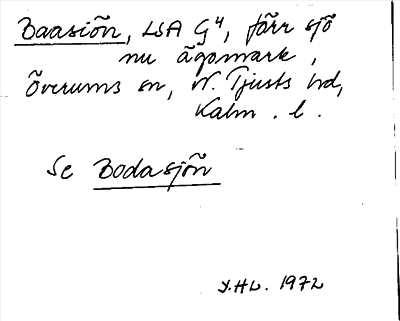 Baasiön, LSA G4, förr sjö
nu ägomark,
Överums sn, N. Tjusts hd,
Kalm. l.
Se Bodasjön
Y.HL. 1972